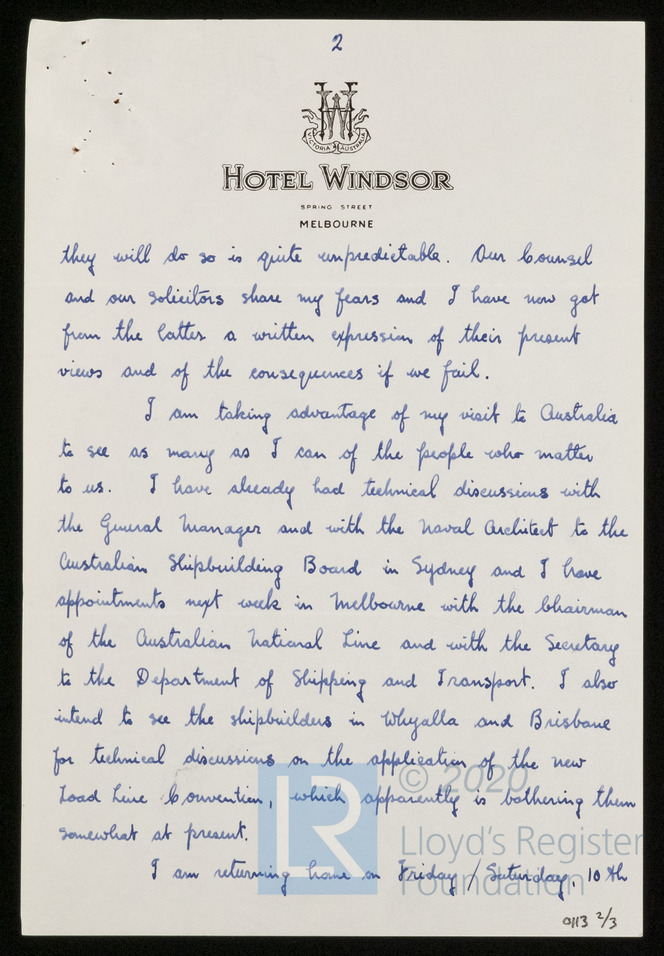 2
HW
VICTORIA AUSTRALIA
HOTEL WINDSOR
SPRING STREET
MELBOURNE
they will do so is quite unpredictable. Our Counsel
and our solicitors share my fears and I have now got
from the latter a written expression of their present
views and of the consequences if we fail.
I am taking advantage of my visit to Australia
to see as many as I can of the people who matter
to us. I have already had technical discussions with
the General Manager and with the Naval Architect to the
Australian Shipbuilding Board in Sydney and I have
appointments next week in Melbourne with the Chairman
of the Australian National Line and with the Secretary
to the Department of Shipping and Transport. I also
intend to see the shipbuilders in Whyalla and Brisbane
for technical discussions on the application of the new
Load Line Convention, which apparently is bothering them
somewhat at present.
I am returning home on Friday / Saturday, 10th
LR © 2020
Lloyd's Register
Foundation
0113 2/3